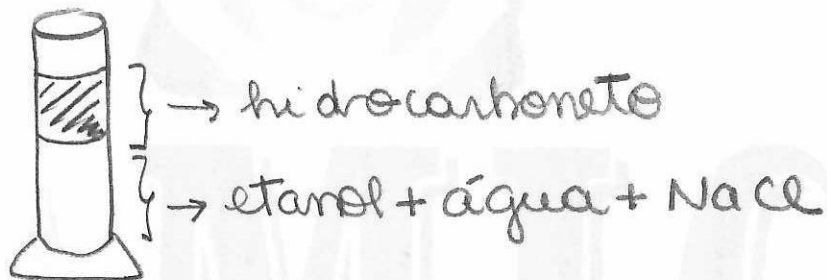 → hidrocarboneto
→ etanol + água + NaCl